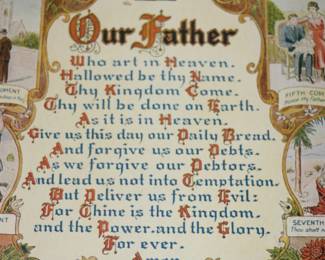 Our Father
Who art in Heaven.
Hallowed be thy Name.
Thy Kingdom Come.
Thy will be done on Earth.
As it is in Heaven.
Give us this day our Daily Bread.
And forgive us our Debts
As we forgive our Debtors.
And lead us not into Temptation.
But Deliver us from Evil:
For Thine is the Kingdom.
and the Power. and the Glory.
For ever.
Amen
FIFTH COM
Honor thy Father
SEVENTH
Thou shalt n